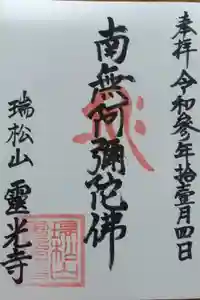 奉拝 令和参年拾壹月四日
南無阿彌陀佛
瑞松山 靈光寺